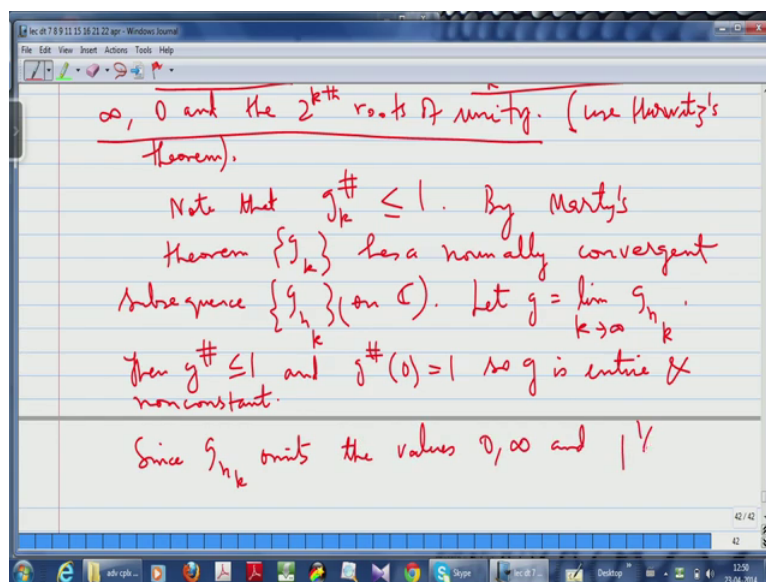 lec dt 7 8 9 11 15 16 21 22 apr - Windows Journal
File Edit View Insert Actions Tools Help
∞, 0 and the 2^{kth} roots of unity. (use Hurwitz's
theorem).
Note that g_k^# ≤ 1. By Marty's
theorem {g_k} has a normally convergent
subsequence {g_{n_k}} (on ℂ). Let g = lim_{k→∞} g_{n_k}.
Then g^# ≤ 1 and g^#(0) = 1 so g is entire &
nonconstant.
Since g_{n_k} omits the values 0, ∞ and 1^{1/
42 / 42
42
adv cplx ...
Skype
lec dt 7 ...
Desktop
12:50
23-04-2014